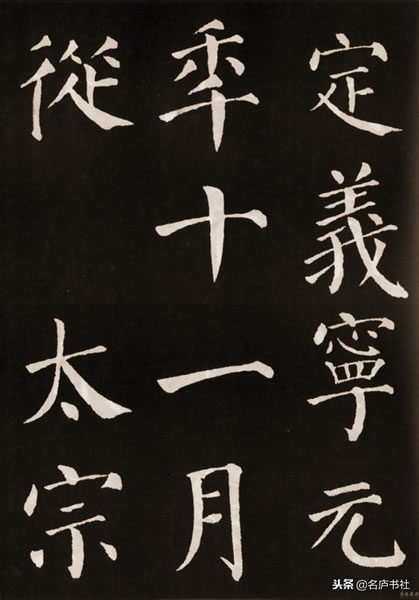 定義寧元
年十一月
從太宗
头条 @名庐书社